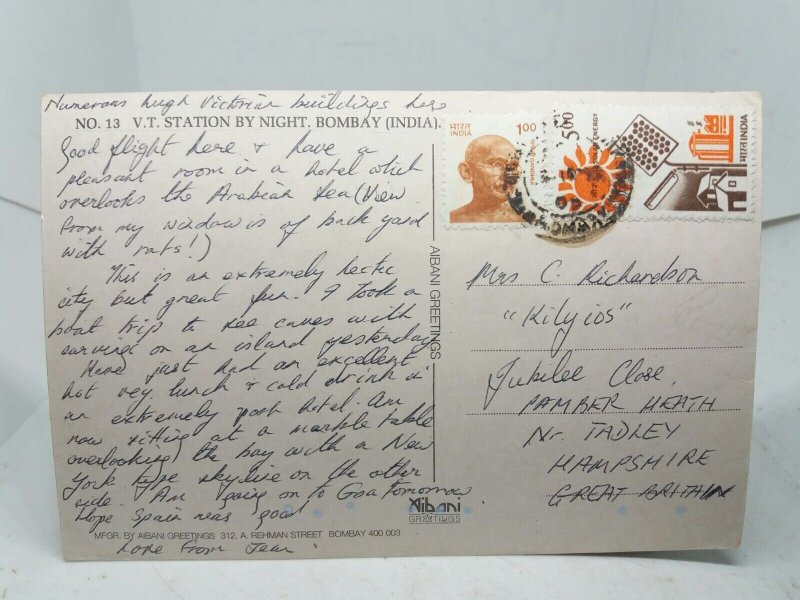 Numerous hugh Victorian buildings here
NO. 13 V.T. STATION BY NIGHT. BOMBAY (INDIA).
Good flight here & have a
pleasant room in a hotel which
overlooks the Arabian Sea (View
from my window is of back yard
with rats!)
This is an extremely hectic
city but great fun. I took a
boat trip to see caves with
carving on an island yesterday
Have just had an excellent
hot veg lunch & cold drink in
an extremely posh hotel. Am
now sitting at a marble table
overlooking the bay with a New
York type skyline on the other
side. Am going on to Goa tomorrow
Hope Spain was good
MFGR. BY AIBANI GREETINGS 312, A. REHMAN STREET BOMBAY 400 003
Love from Jean
AIBANI GREETINGS
Aibani
GREETINGS
भारत
INDIA
1.00
500
ENERGY
भारत INDIA
Mrs C. Richardson
"Kilyios"
Jubilee Close,
PAMBER HEATH
Nr. TADLEY
HAMPSHIRE
GREAT BRITAIN